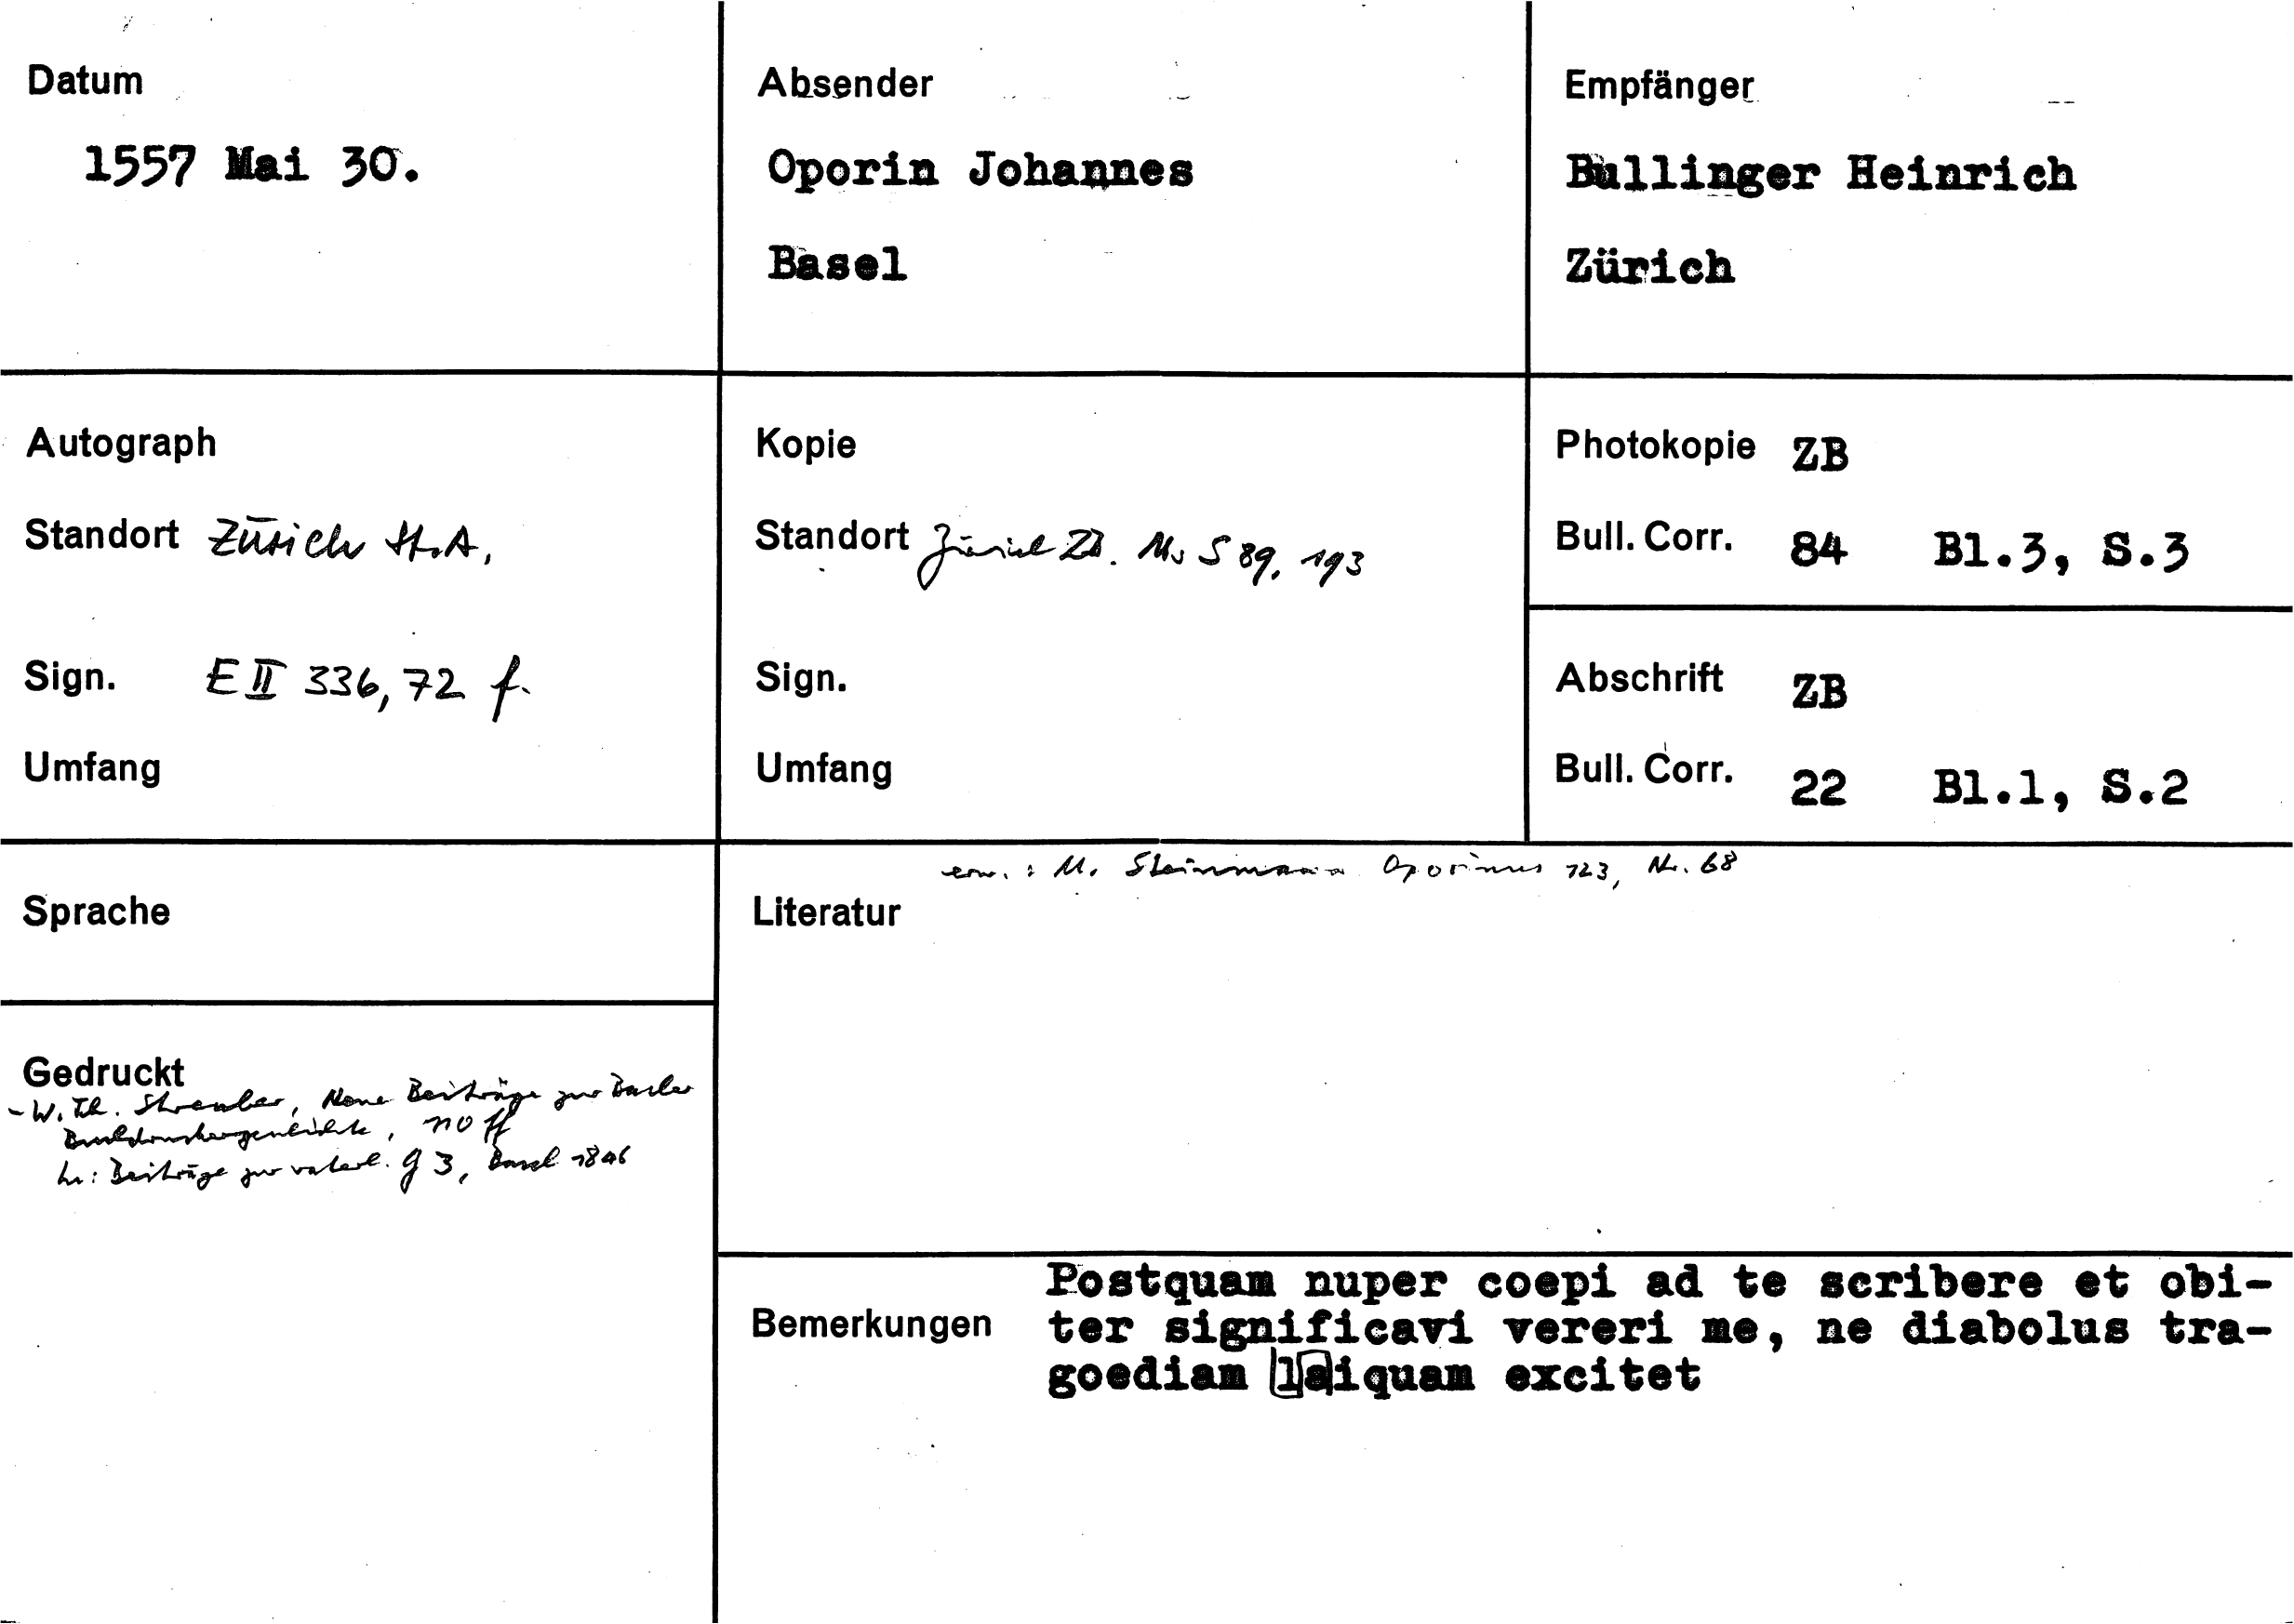 Datum
1557 Mai 30.
Absender
Oporin Johannes
Basel
Empfänger
Bullinger Heinrich
Zürich
Autograph
Standort Zürich St.A,
Sign. E II 336, 72 f.
Umfang
Kopie
Standort Zürich ZB. Ms S 89, 193
Sign.
Umfang
Photokopie ZB
Bull. Corr. 84 Bl.3, S.3
Abschrift ZB
Bull. Corr. 22 Bl.1, S.2
Sprache
Gedruckt
- W. Th. Streuber, Neue Beiträge zur Basler
Buchdruckergeschichte, 110 ff
In: Beiträge zur vaterl. G 3, Basel 1846
erw. : M. Steinmann Oporinus 123, Nr. 68
Literatur
Bemerkungen
Postquam nuper coepi ad te scribere et obi-
ter significavi vereri me, ne diabolus tra-
goediam laiquam excitet